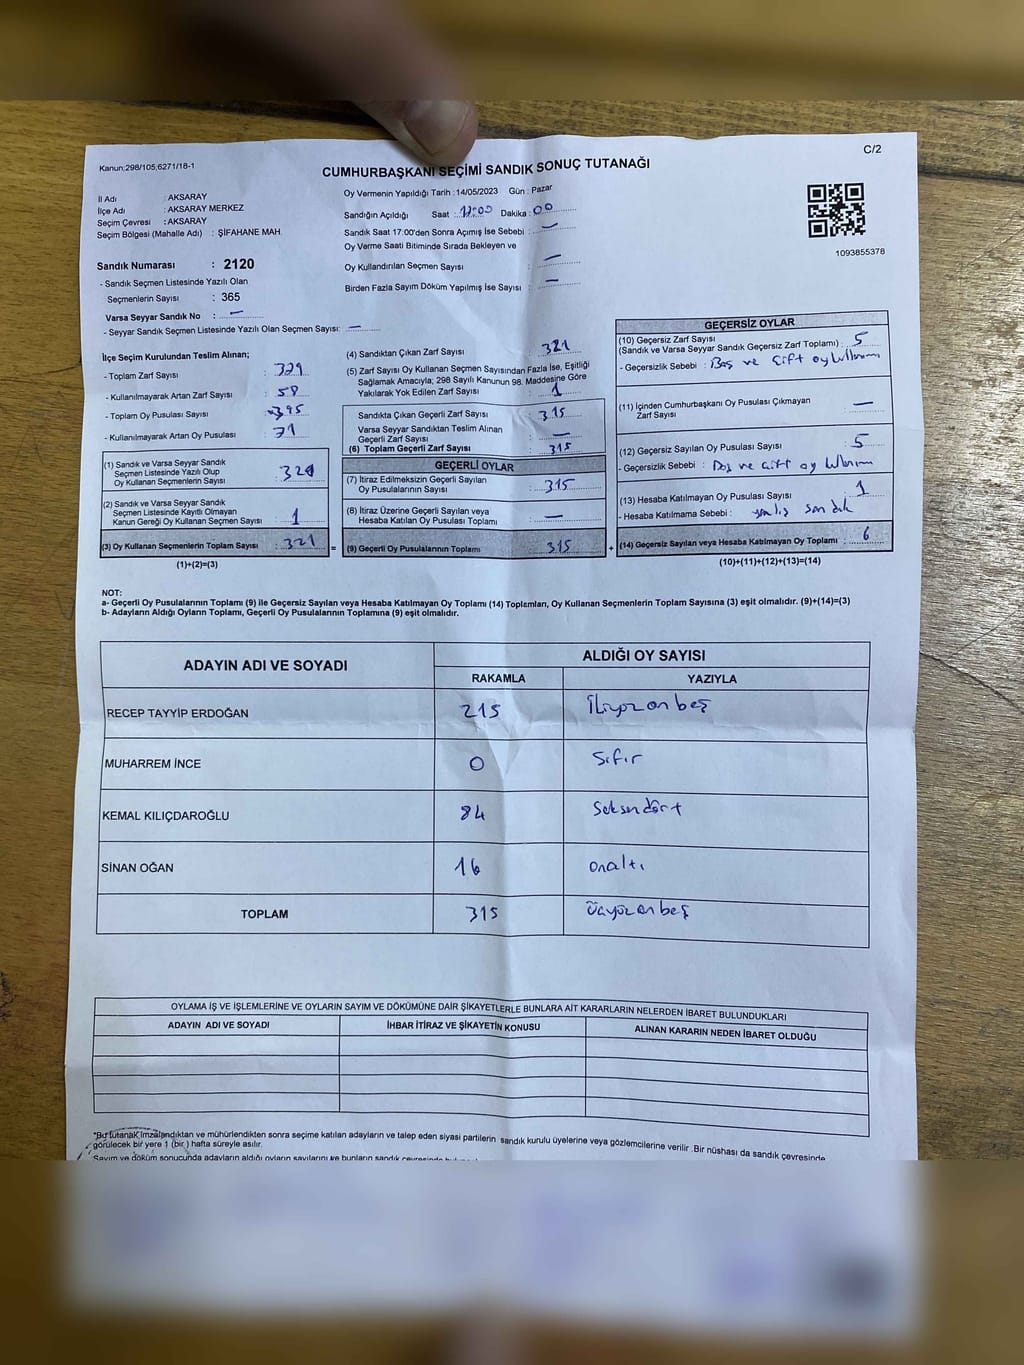 C/2
Kanun:298/105;6271/18-1
CUMHURBAŞKANI SEÇİMİ SANDIK SONUÇ TUTANAĞI
İl Adı : AKSARAY
İlçe Adı : AKSARAY MERKEZ
Seçim Çevresi : AKSARAY
Seçim Bölgesi (Mahalle Adı) : ŞİFAHANE MAH.
Oy Vermenin Yapıldığı Tarih : 14/05/2023 Gün : Pazar
Sandığın Açıldığı Saat : 17:00 Dakika : 00
Sandık Saat 17:00'den Sonra Açımış İse Sebebi : —
Oy Verme Saati Bitiminde Sırada Bekleyen ve
Oy Kullandırılan Seçmen Sayısı : —
Birden Fazla Sayım Döküm Yapılmış İse Sayısı : —
1093855378
Sandık Numarası : 2120
- Sandık Seçmen Listesinde Yazılı Olan
Seçmenlerin Sayısı : 365
Varsa Seyyar Sandık No : —
- Seyyar Sandık Seçmen Listesinde Yazılı Olan Seçmen Sayısı: —
İlçe Seçim Kurulundan Teslim Alınan;
- Toplam Zarf Sayısı :
- Kullanılmayarak Artan Zarf Sayısı : 58
- Toplam Oy Pusulası Sayısı : 395
- Kullanılmayarak Artan Oy Pusulası : 71
(1) Sandık ve Varsa Seyyar Sandık
Seçmen Listesinde Yazılı Olup
Oy Kullanan Seçmenlerin Sayısı : 320
(2) Sandık ve Varsa Seyyar Sandık
Seçmen Listesinde Kayıtlı Olmayan
Kanun Gereği Oy Kullanan Seçmen Sayısı : 1
(3) Oy Kullanan Seçmenlerin Toplam Sayısı : 321 =
(1)+(2)=(3)
(4) Sandıktan Çıkan Zarf Sayısı : 321
(5) Zarf Sayısı Oy Kullanan Seçmen Sayısından Fazla İse, Eşitliği
Sağlamak Amacıyla; 298 Sayılı Kanunun 98. Maddesine Göre
Yakılarak Yok Edilen Zarf Sayısı : 1
Sandıkta Çıkan Geçerli Zarf Sayısı : 315
Varsa Seyyar Sandıktan Teslim Alınan
Geçerli Zarf Sayısı : —
(6) Toplam Geçerli Zarf Sayısı : 315
GEÇERLİ OYLAR
(7) İtiraz Edilmeksizin Geçerli Sayılan
Oy Pusulalarının Sayısı : 315
(8) İtiraz Üzerine Geçerli Sayılan veya
Hesaba Katılan Oy Pusulası Toplamı : —
(9) Geçerli Oy Pusulalarının Toplamı : 315 +
GEÇERSİZ OYLAR
(10) Geçersiz Zarf Sayısı
(Sandık ve Varsa Seyyar Sandık Geçersiz Zarf Toplamı) : 5
- Geçersizlik Sebebi : Boş ve Çift oy kullanımı
(11) İçinden Cumhurbaşkanı Oy Pusulası Çıkmayan
Zarf Sayısı : —
(12) Geçersiz Sayılan Oy Pusulası Sayısı : 5
- Geçersizlik Sebebi : Boş ve Çift oy kullanımı
(13) Hesaba Katılmayan Oy Pusulası Sayısı : 1
- Hesaba Katılmama Sebebi : yanlış sandık
(14) Geçersiz Sayılan veya Hesaba Katılmayan Oy Toplamı : 6
(10)+(11)+(12)+(13)=(14)
NOT:
a- Geçerli Oy Pusulalarının Toplamı (9) ile Geçersiz Sayılan veya Hesaba Katılmayan Oy Toplamı (14) Toplamları, Oy Kullanan Seçmenlerin Toplam Sayısına (3) eşit olmalıdır. (9)+(14)=(3)
b- Adayların Aldığı Oyların Toplamı, Geçerli Oy Pusulalarının Toplamına (9) eşit olmalıdır.
ADAYIN ADI VE SOYADI ALDIĞI OY SAYISI
RAKAMLA YAZIYLA
RECEP TAYYİP ERDOĞAN 215 İkiyüzonbeş
MUHARREM İNCE 0 Sıfır
KEMAL KILIÇDAROĞLU 84 Seksendört
SİNAN OĞAN 16 onaltı
TOPLAM 315 Üçyüzonbeş
OYLAMA İŞ VE İŞLEMLERİNE VE OYLARIN SAYIM VE DÖKÜMÜNE DAİR ŞİKAYETLERLE BUNLARA AİT KARARLARIN NELERDEN İBARET BULUNDUKLARI
ADAYIN ADI VE SOYADI İHBAR İTİRAZ VE ŞİKAYETİN KONUSU ALINAN KARARIN NEDEN İBARET OLDUĞU
*Bu tutanak imzalandıktan ve mühürlendikten sonra seçime katılan adayların ve talep eden siyasi partilerin sandık kurulu üyelerine veya gözlemcilerine verilir. Bir nüshası da sandık çevresinde
görülecek bir yere 1 (bir) hafta süreyle asılır.
Sayım ve döküm sonucunda adayların aldığı oyların sayılarını ve bunların sandık